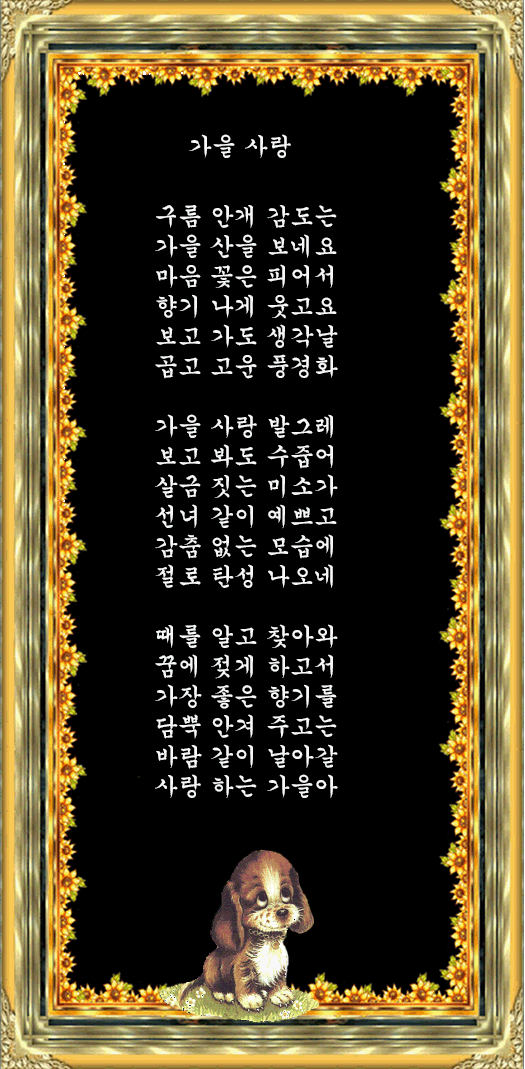 가을 사랑
구름 안개 감도는
가을 산을 보네요
마음 꽃은 피어서
향기 나게 웃고요
보고 가도 생각날
곱고 고운 풍경화
가을 사랑 발그레
보고 봐도 수줍어
살금 짓는 미소가
선녀 같이 예쁘고
감춤 없는 모습에
절로 탄성 나오네
때를 알고 찾아와
꿈에 젖게 하고서
가장 좋은 향기를
담뿍 안겨 주고는
바람 같이 날아갈
사랑 하는 가을아